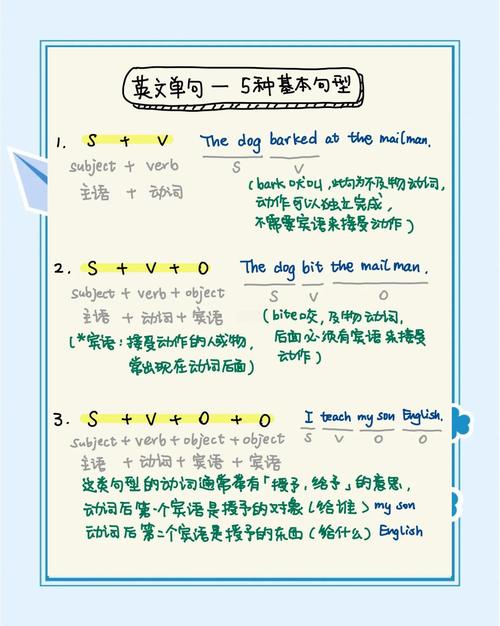 英文单句一 5种基本句型
1. S + V The dog barked at the mailman.
subject + verb S V
主语 + 动词 (bark 吠叫,此句为不及物动词,
动作可以独立完成,
不需要宾语来接受动作)
2. S + V + O The dog bit the mailman.
subject + verb + object S V O
主语 + 动词 + 宾语 (bite咬,及物动词,
(*宾语:接受动作的人或物, 后面必须有宾语来接受
常出现在动词后面) 动作)
3. S + V + O + O I teach my son English.
subject + verb + object + object S V O O
主语 + 动词 + 宾语 + 宾语
这类句型的动词通常带有「授予,给予」的意思,
动词后第一个宾语是授予的对象(给谁) my son
动词后第二个宾语是授予的东西(给什么) English